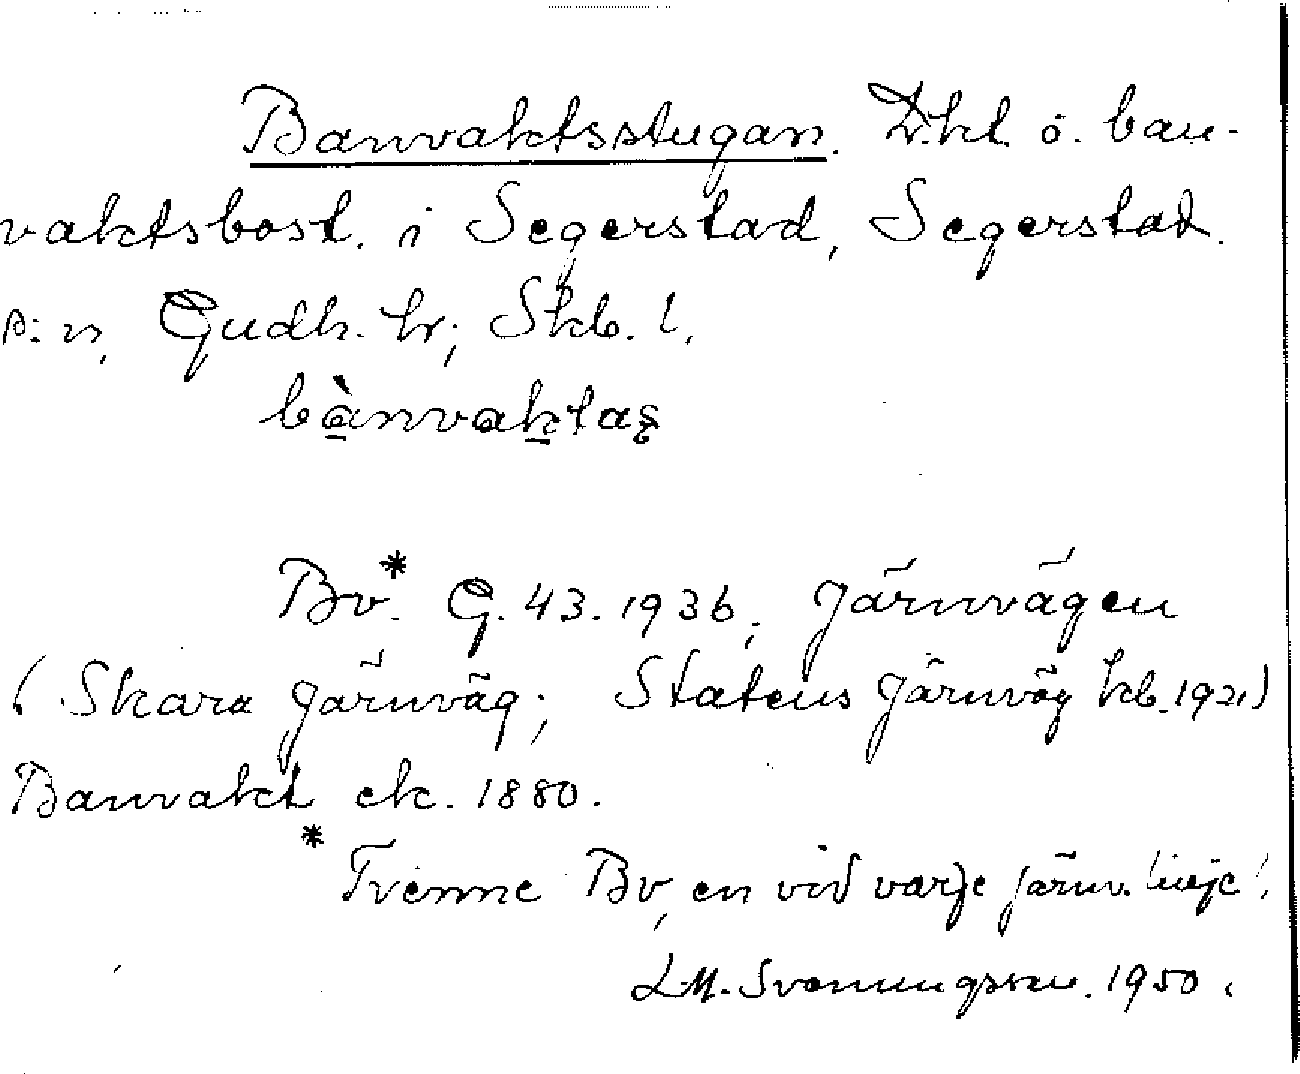 Banvaktsstugan. L.hl. o. ban-
vaktsbost. i Segerstad, Segerstad
s:n, Gudh. hr; Skb. l.
bànvaktas
Bv.* G. 43. 1936; Järnvägen
(Skara Järnväg; Statens Järnväg kb. 1921)
Banvakt ek. 1880.
* Tvenne Bv, en vid varje järnv.linje!
LM. Svanungsson. 1950.